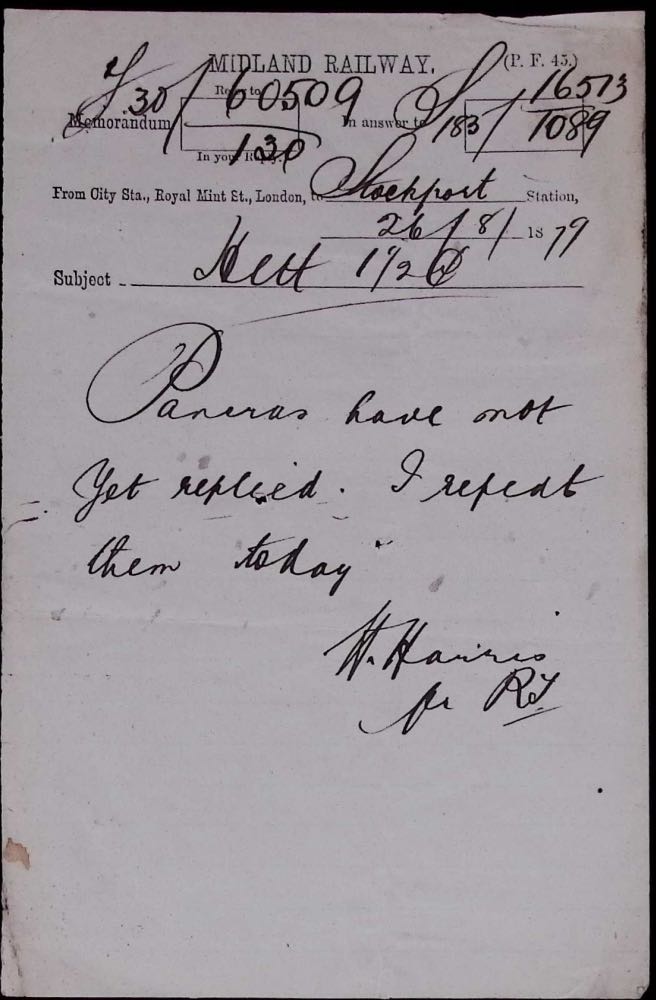 MIDLAND RAILWAY. (P. F. 45.)
30 / 60509 / 130
Memorandum
In answer to S 183 / 16573 / 1089
In your Reply.
From City Sta., Royal Mint St., London, to Stockport Station,
26/8/1879
Subject Hett 1/2d
Pancras have not
Yet replied. I repeat
them today
W. Harris
pr RT